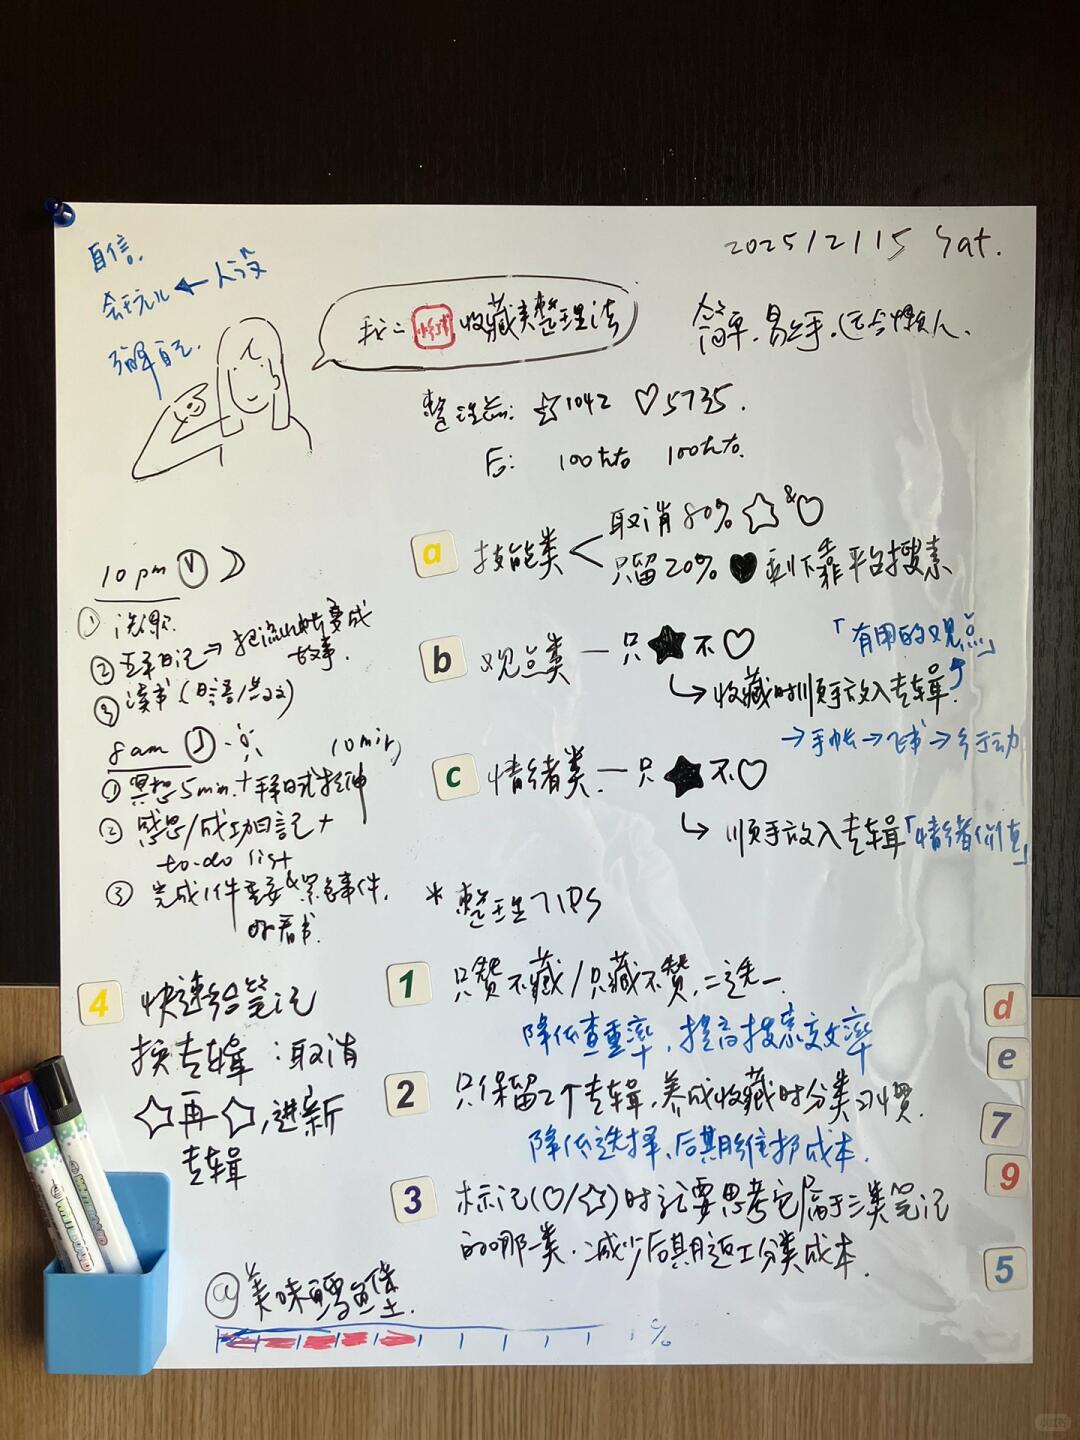 2025/2/15 Sat.
自信.
会玩儿 ← 人设
了解自己.
我的 小红书 收藏夹整理法
简单.易上手.适合懒人.
整理前: ☆1042 ♡5735.
后: 100左右 100左右.
a 技能类
取消80% ☆&♡
只留20% ♥ 剩下靠平台搜索
b 观点类 — 只★不♡
「有用的观点」
↳ 收藏时顺手放入专辑.
→ 手帐 → 飞书 → 行动
c 情绪类. — 只★不♡
↳ 顺手放入专辑「情绪价值」
10pm
①洗漱
② 日记 → 把流水帐变成
故事.
③ 读书 (日语/英文)
8am 10min
① 冥想5min.+ 拉伸
② 感恩/成功日記 +
to-do list
③ 完成1件重要&紧急事件.
如看书.
* 整理TIPS
1 只赞不藏/只藏不赞,二选一.
降低查重率,提高搜索效率
2 只保留2个专辑,养成收藏时分类习惯.
降低选择、后期维护成本.
3 标记(♡/☆)时就要思考它属于三类笔记
的哪一类.减少后期返工分类成本.
4 快速给笔记
换专辑:取消
☆再☆,进新
专辑
@美味鳕鱼堡.
%
d
e
7
9
5
小红书